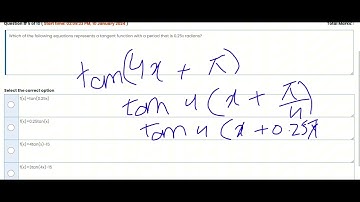 Question # 5 of 10 ( Start time: 03:04:23 PM, 10 January 2024 )
Total Marks:
Which of the following equations represents a tangent function with a period that is 0.25π radians?
tan(4x + π)
Select the correct option
tan 4 (x + π/4)
tan 4 (x + 0.25π
f(x)=tan(0.25x)
f(x)=0.25tan(x)
f(x)=4tan(x)-15.
f(x)=2tan(4x)-15